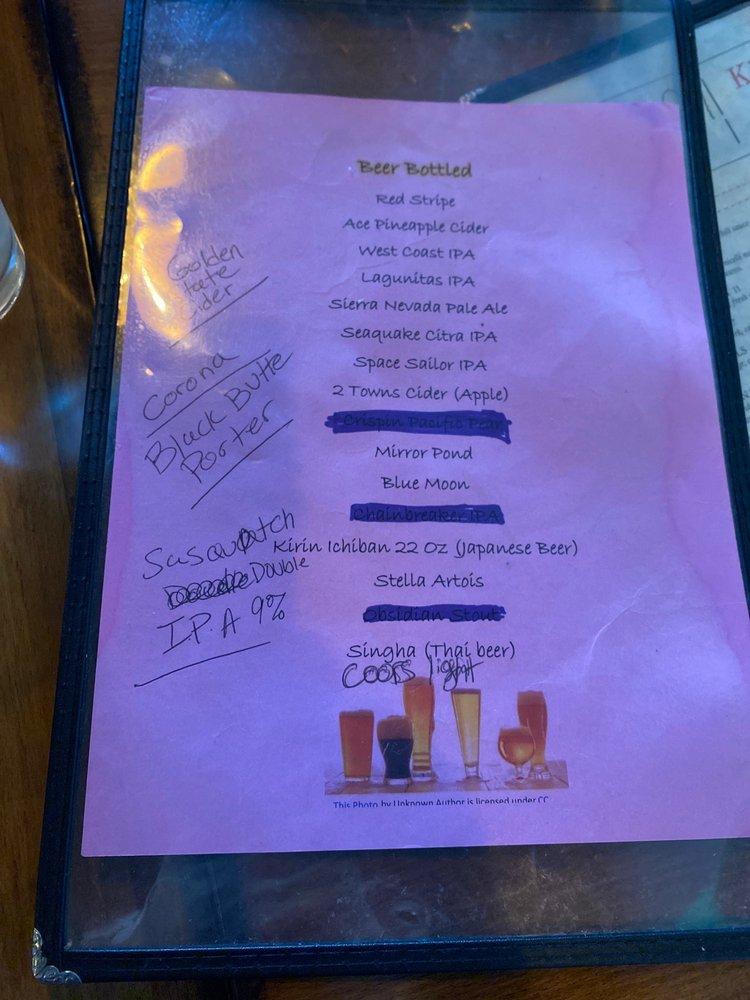 Beer Bottled
Red Stripe
Ace Pineapple Cider
West Coast IPA
Lagunitas IPA
Sierra Nevada Pale Ale
Seaquake Citra IPA
Space Sailor IPA
2 Towns Cider (Apple)
Crispin Pacific Pear
Mirror Pond
Blue Moon
Chainbreaker IPA
Kirin Ichiban 22 Oz (Japanese Beer)
Stella Artois
Obsidian Stout
Singha (Thai beer)
Coors light
This Photo by Unknown Author is licensed under CC
Golden
tate
ider
Corona
Black Butte
Porter
Sasquatch
Double
I.P.A 9%